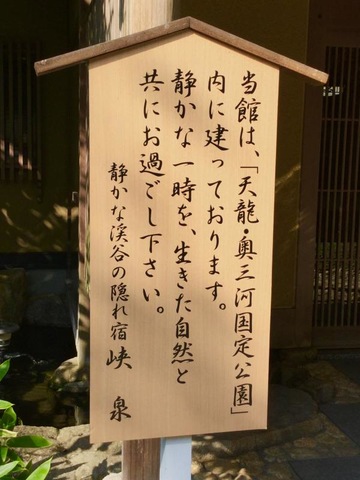 当館は、「天龍・奥三河国定公園」
内に建っております。
静かな一時を、生きた自然と
共にお過ごし下さい。
静かな渓谷の隠れ宿 峡 泉